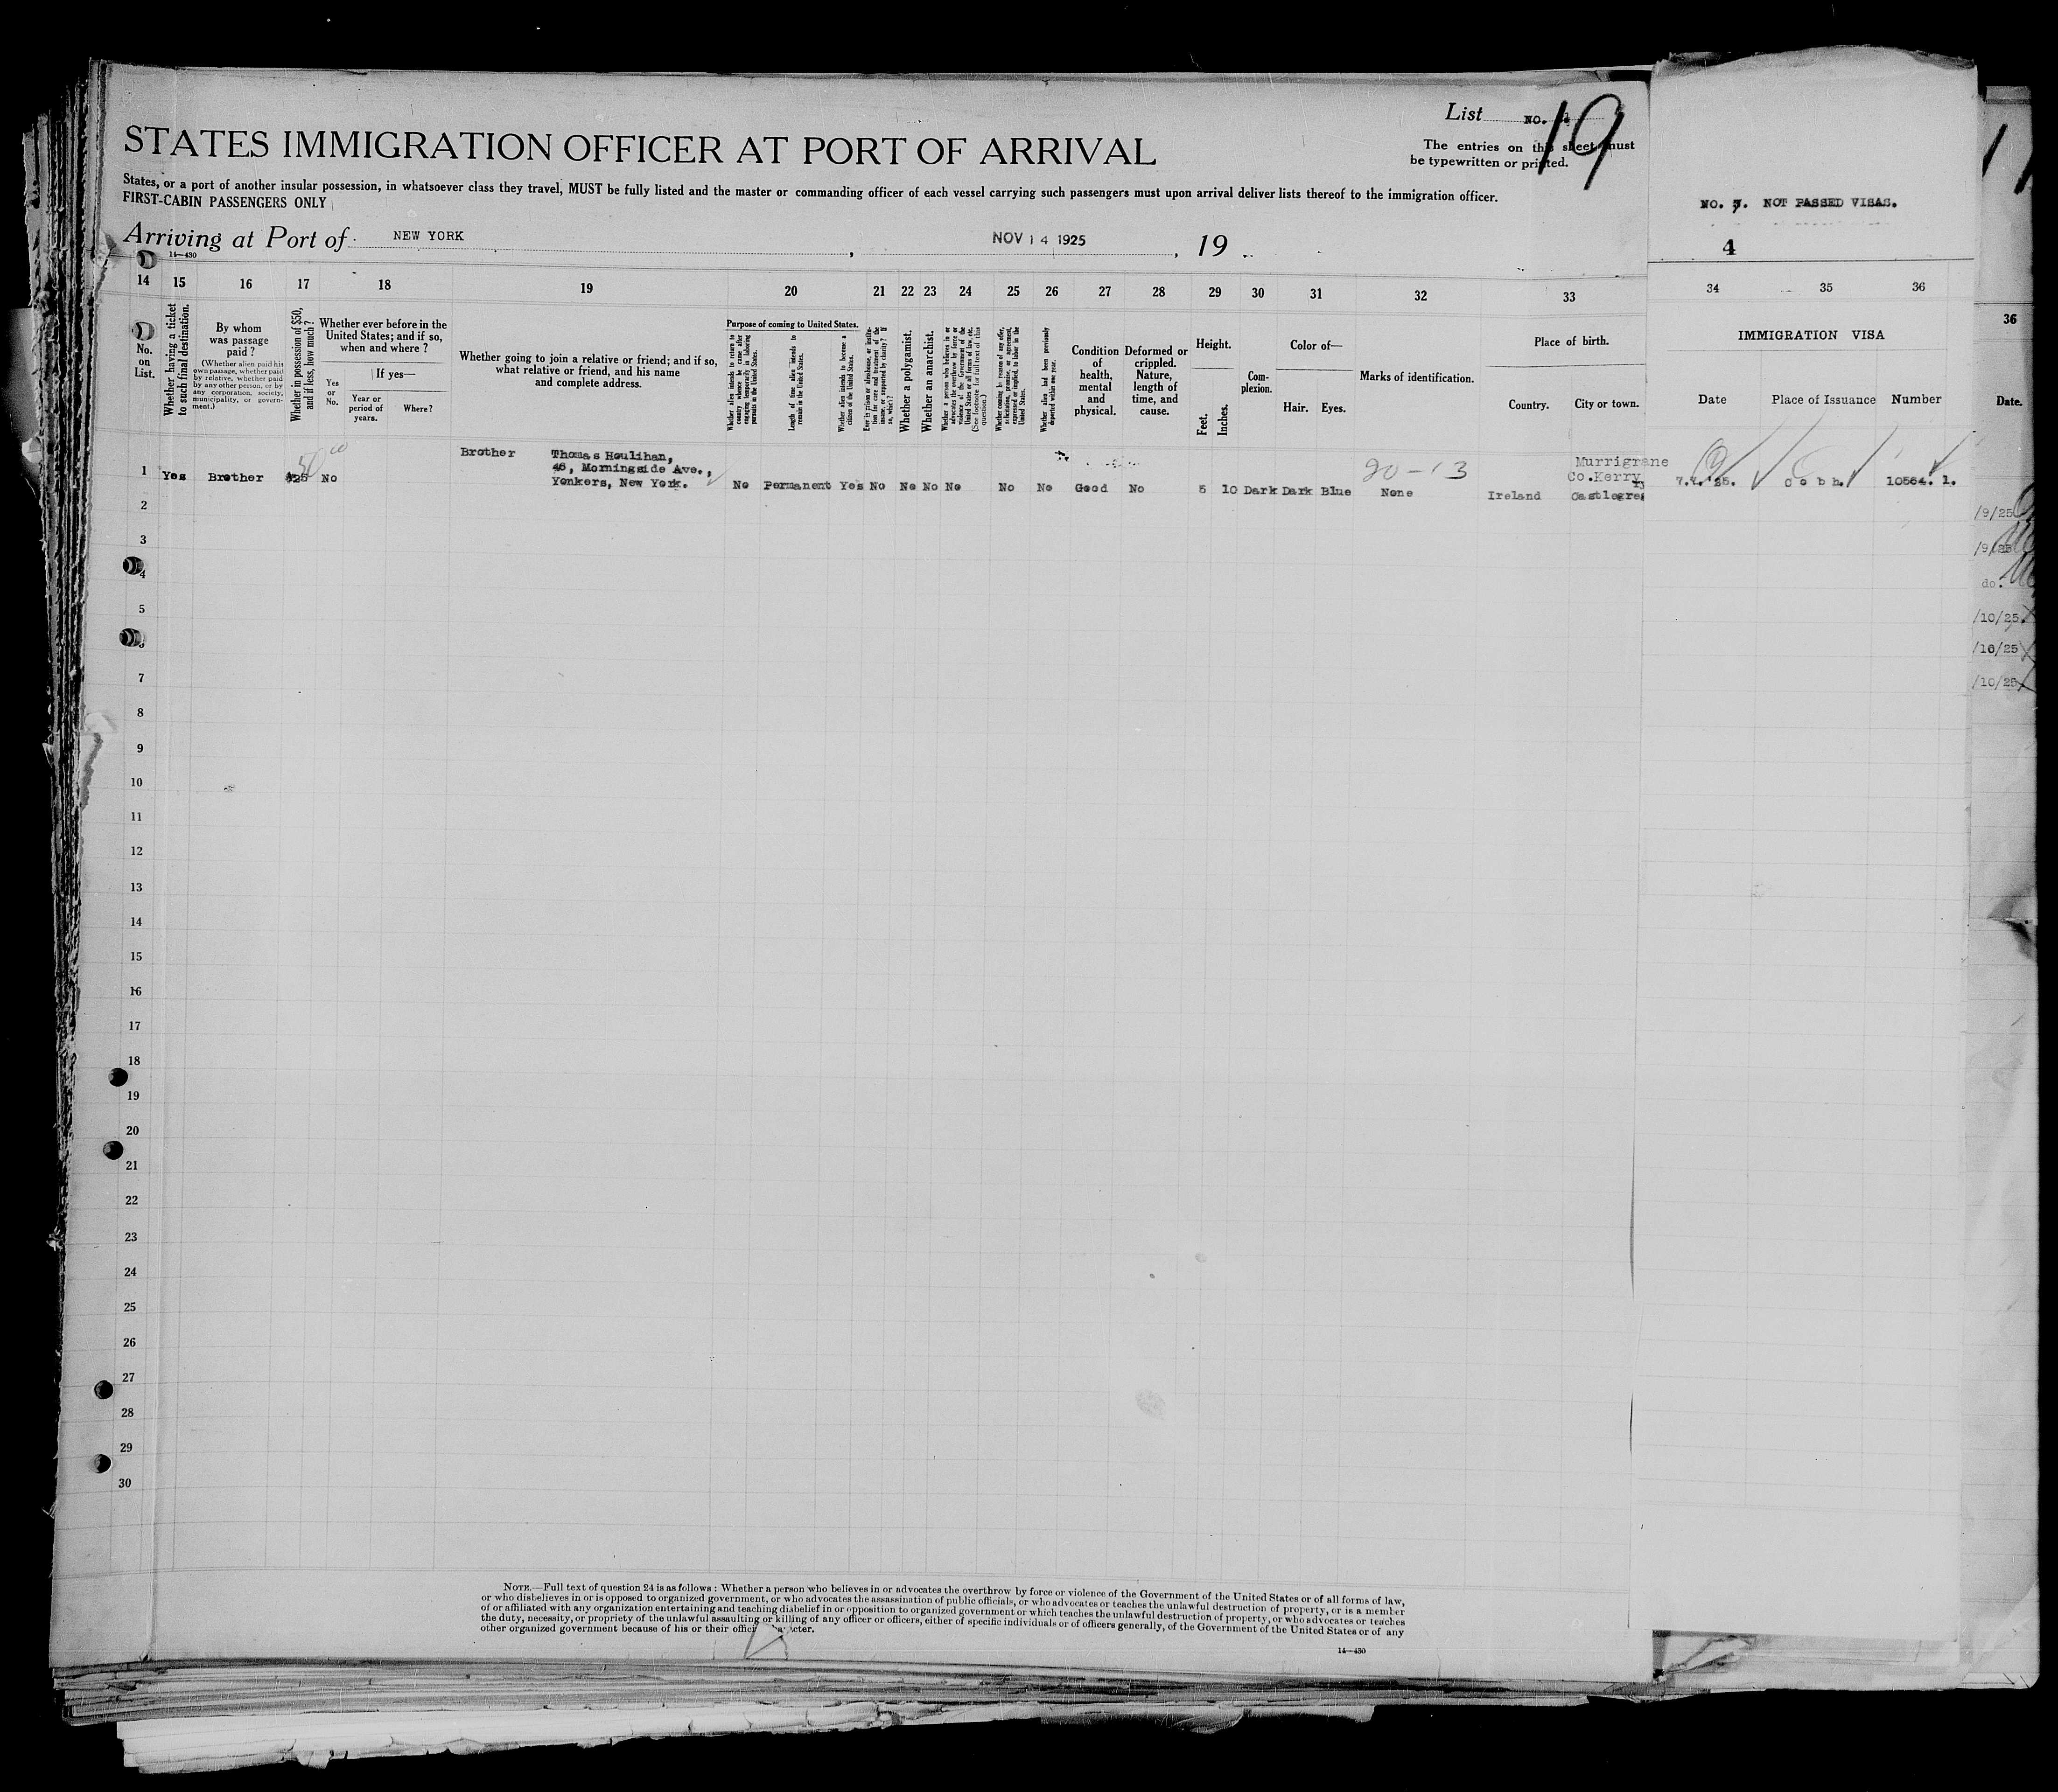 List NO. 19
The entries on this sheet must
be typewritten or printed.
STATES IMMIGRATION OFFICER AT PORT OF ARRIVAL
States, or a port of another insular possession, in whatsoever class they travel, MUST be fully listed and the master or commanding officer of each vessel carrying such passengers must upon arrival deliver lists thereof to the immigration officer.
FIRST-CABIN PASSENGERS ONLY
NO. 7. NOT PASSED VISAS.
4
Arriving at Port of NEW YORK, NOV 14 1925, 19
14—430
14 15 16 17 18 19 20 21 22 23 24 25 26 27 28 29 30 31 32 33 34 35 36
No. on List.
Whether having a ticket to such final destination.
By whom was passage paid?
(Whether alien paid his own passage, whether paid by relative, whether paid by any other person, or by any corporation, society, municipality, or government.)
Whether in possession of $50, and if less, how much?
Whether ever before in the United States; and if so, when and where?
Yes or No.
If yes—
Year or period of years.
Where?
Whether going to join a relative or friend; and if so, what relative or friend, and his name and complete address.
Purpose of coming to United States.
Whether alien intends to return to country whence he came after engaging temporarily in laboring pursuits in the United States.
Length of time alien intends to remain in the United States.
Whether alien intends to become a citizen of the United States.
Ever in prison or almshouse, or institution for care and treatment of the insane, or supported by charity? If so, which?
Whether a polygamist.
Whether an anarchist.
Whether a person who believes in or advocates the overthrow by force or violence of the Government of the United States or all forms of law, etc. (See footnote for full text of this question.)
Whether coming by reason of any offer, solicitation, promise, or agreement, expressed or implied, to labor in the United States.
Whether alien had been previously deported within one year.
Condition of health, mental and physical.
Deformed or crippled. Nature, length of time, and cause.
Height.
Feet. Inches.
Complexion.
Color of—
Hair. Eyes.
Marks of identification.
Place of birth.
Country. City or town.
IMMIGRATION VISA
Date Place of Issuance Number
36
Date.
1 Yes Brother $25 50 00 No Brother Thomas Houlihan,
46, Morningside Ave.,
Yonkers, New York.
No Permanent Yes No No No No No No Good No 5 10 Dark Dark Blue 20-13 None Ireland Murrigrane
Co.Kerry
Castlegre
7.7.'25. Cobh. 10564. 1.
2
3
4
5
7
8
9
10
11
12
13
14
15
16
17
18
19
20
21
22
23
24
25
26
27
28
29
30
/9/25
/9/25
do.
/10/25
/10/25
/10/25
NOTE.—Full text of question 24 is as follows: Whether a person who believes in or advocates the overthrow by force or violence of the Government of the United States or of all forms of law,
or who disbelieves in or is opposed to organized government, or who advocates the assassination of public officials, or who advocates or teaches the unlawful destruction of property, or is a member
of or affiliated with any organization entertaining and teaching disbelief in or opposition to organized government or which teaches the unlawful destruction of property, or who advocates or teaches
the duty, necessity, or propriety of the unlawful assaulting or killing of any officer or officers, either of specific individuals or of officers generally, of the Government of the United States or of any
other organized government because of his or their official character.
14—430